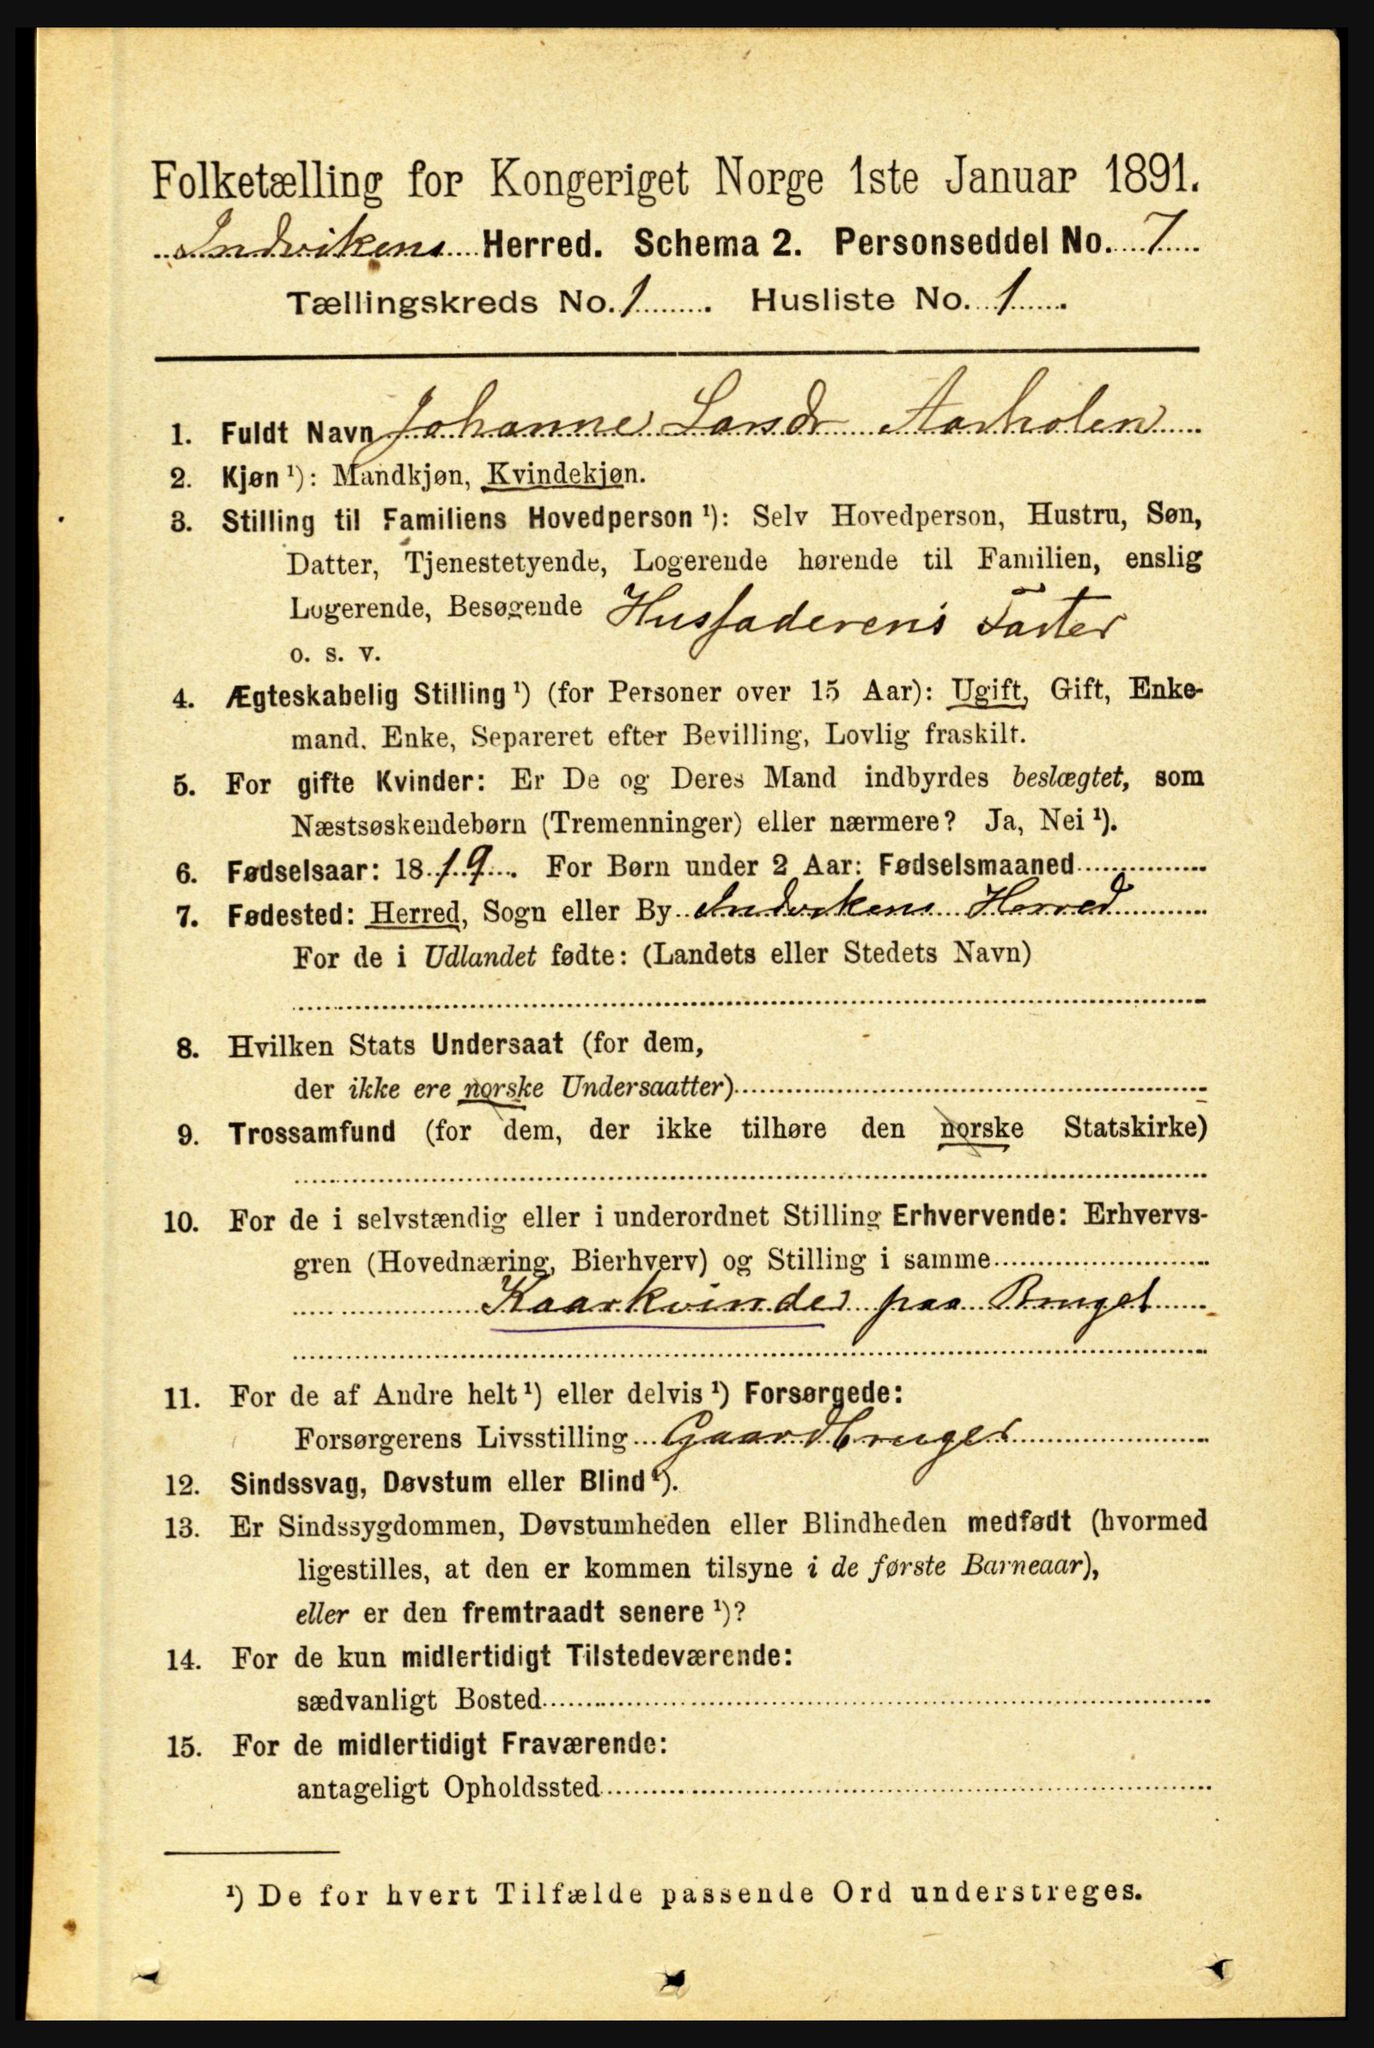 Folketælling for Kongeriget Norge 1ste Januar 1891.
Indvikens Herred. Schema 2. Personseddel No. 7
Tællingskreds No. 1. Husliste No. 1.
1. Fuldt Navn Johanne Larsdr Aarholen
2. Kjøn ¹): Mandkjøn, Kvindekjøn.
3. Stilling til Familiens Hovedperson ¹): Selv Hovedperson, Hustru, Søn,
Datter, Tjenestetyende, Logerende hørende til Familien, enslig
Logerende, Besøgende Husfaderens Faster
o. s. v.
4. Ægteskabelig Stilling ¹) (for Personer over 15 Aar): Ugift, Gift, Enke-
mand. Enke, Separeret efter Bevilling, Lovlig fraskilt.
5. For gifte Kvinder: Er De og Deres Mand indbyrdes beslægtet, som
Næstsøskendebørn (Tremenninger) eller nærmere? Ja, Nei ¹).
6. Fødselsaar: 1819. For Børn under 2 Aar: Fødselsmaaned
7. Fødested: Herred, Sogn eller By Indvikens Herred
For de i Udlandet fødte: (Landets eller Stedets Navn)
8. Hvilken Stats Undersaat (for dem,
der ikke ere norske Undersaatter)
9. Trossamfund (for dem, der ikke tilhøre den norske Statskirke)
10. For de i selvstændig eller i underordnet Stilling Erhvervende: Erhvervs-
gren (Hovednæring, Bierhverv) og Stilling i samme
Kaarkvinde paa Bruget
11. For de af Andre helt ¹) eller delvis ¹) Forsørgede:
Forsørgerens Livsstilling Gaardbruger
12. Sindssvag, Døvstum eller Blind ¹).
13. Er Sindssygdommen, Døvstumheden eller Blindheden medfødt (hvormed
ligestilles, at den er kommen tilsyne i de første Barneaar),
eller er den fremtraadt senere ¹)?
14. For de kun midlertidigt Tilstedeværende:
sædvanligt Bosted
15. For de midlertidigt Fraværende:
antageligt Opholdssted
¹) De for hvert Tilfælde passende Ord understreges.